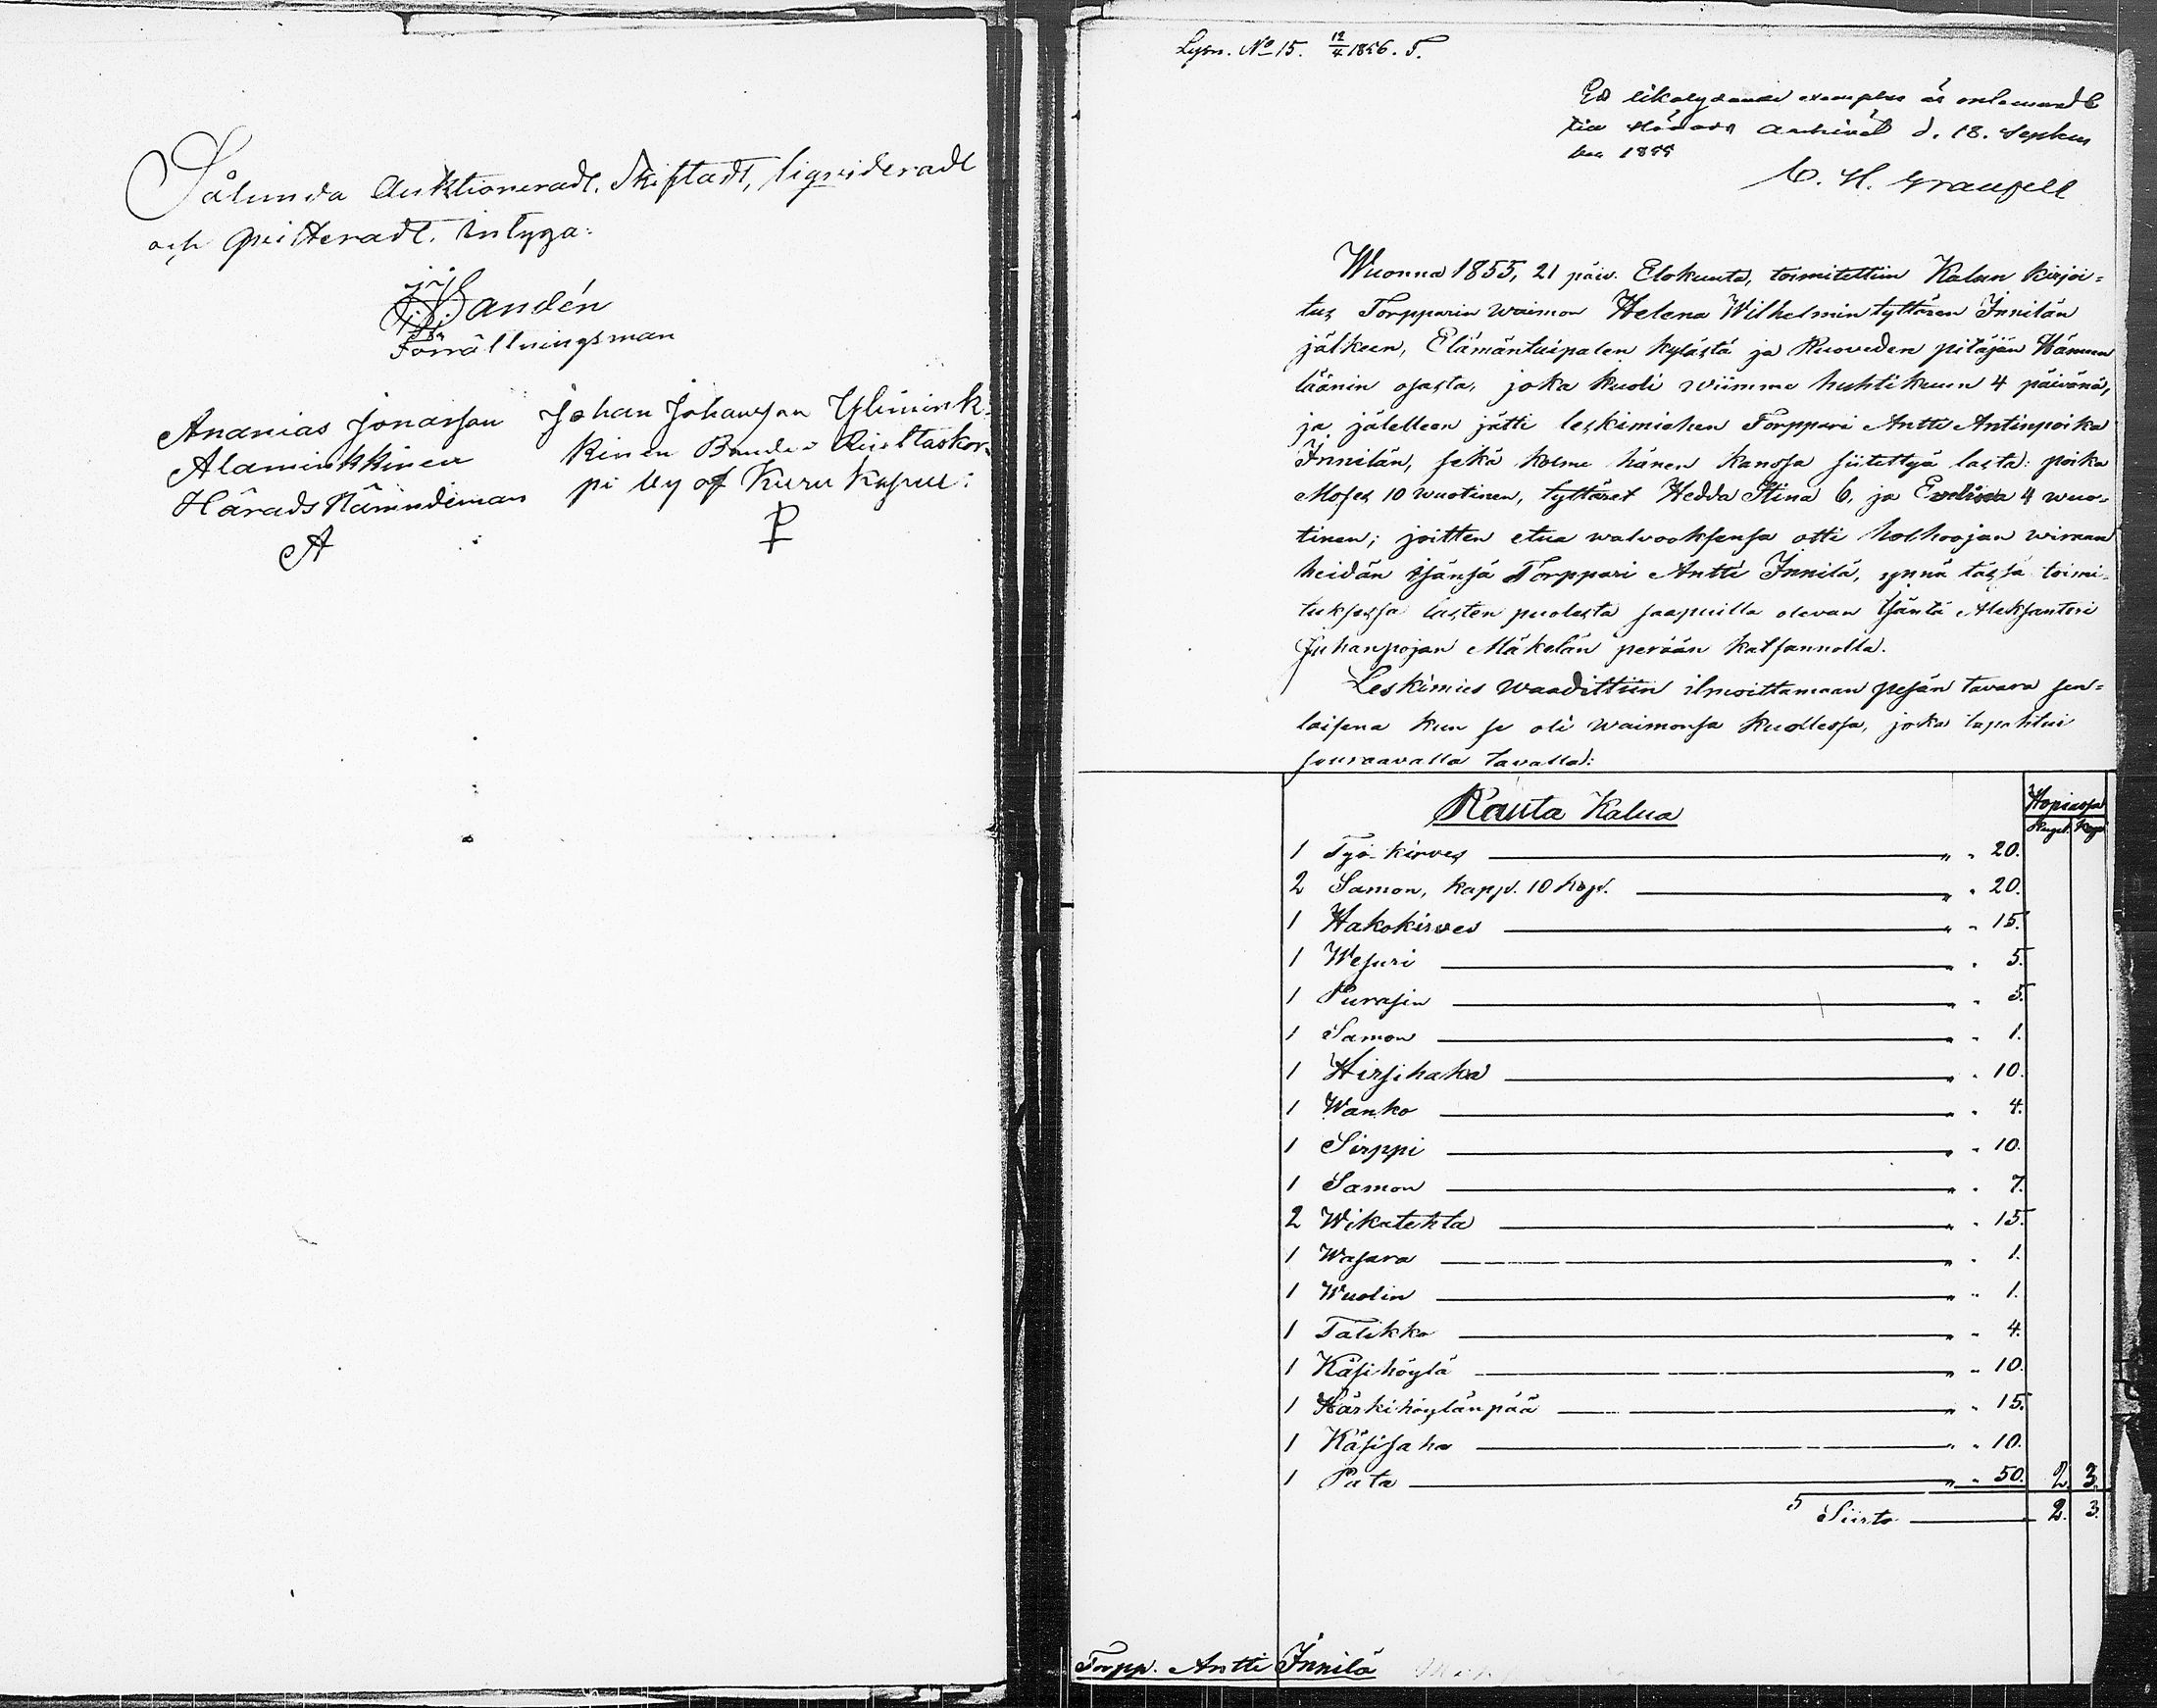 Sålunda Auktioneradt, Skiftadt, liqvideradt
och qvitteradt. Intyga:
Sandén
Förrättningsman
Ananias Jonasson
Alaminkkinen
Härads Nämndeman
A
Johan Johansson Ylimink-
kinen Bonde i Riuttaskor-
pi by af Kuru Kapell:
Lysn. No 15. 12/4 1856. S.
Ett likalydande exemplar är inlemnadt
till Härads Archivet d. 18. Septem
ber 1855
C. H. Granfelt
Wuonna 1855, 21 päiv. Elokuuta, toimitettiin Kalun kirjoi=
tus Torpparin waimon Helena Wilhelmintyttären Innilän
jälkeen, Elämäntaipalen kylästä ja Ruoveden pitäjän Hämeen
läänin osasta, joka kuoli wiimme huhtikuun 4 päivänä,
ja jälelleen jätti leskimiehen Torppari Antti Antinpoika
Innilän, sekä kolme hänen kanssa siitettyä lasta: poika
Moses 10 wuotinen, tyttäret Hedda Stina 6, ja Evelina 4 wuo=
tinen; joitten etua walvooksensa otti holhoojan wiran
heidän isänsä Torppari Antti Innilä, ynnä tässä toimi=
tuksessa lasten puolesta saapuilla olevan Isäntä Aleksanteri
Juhanpojan Mäkelän perään katsannolla.
Leskimies waadittiin ilmoittamaan pesän tavara sen=
laisena kun se oli waimonsa kuollessa, joka tapahtui
seuraavalla tavalla:
Rauta Kalua
Hopiassa
Rupl. Kop.
1 Työ kirves " " 20.
2 Samon, kapp. 10 kop. " 20.
1 Hakokirves " " 15.
1 Wesuri " " 5.
1 Purasin " " 5.
1 Samon " " 1.
1 Hirsihaka " " 10.
1 Wanko " " 4.
1 Sirppi " " 10.
1 Samon " " 7.
2 Wikatehta " " 15.
1 Wasara " " 1.
1 Wuolin " " 1.
1 Talikko " " 4.
1 Käsihöylä " " 10.
1 Härkihöylänpää " " 15.
1 Käsisaha " " 10.
1 Pata " " 50. 2. 3.
Siirto 2. 3.
Torpp. Antti Innilä